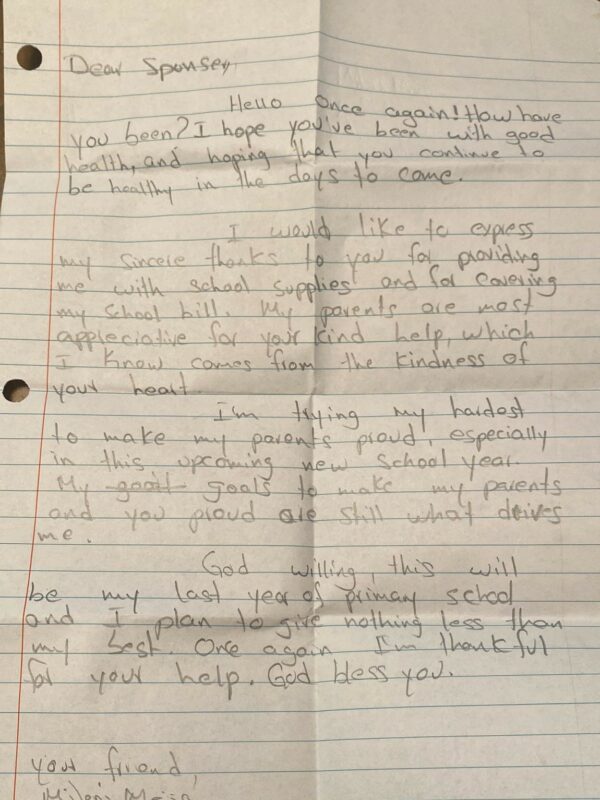 Dear Sponser,
Hello Once again! How have
you been? I hope you've been with good
health, and hoping that you continue to
be healthy in the days to come.
I would like to express
my sincere thanks to you for providing
me with school supplies and for covering
my school bill. My parents are most
appreciative for your kind help, which
I know comes from the kindness of
your heart.
I'm trying my hardest
to make my parents proud, especially
in this upcoming new school year.
My goals to make my parents
and you proud are still what drives
me.
God willing, this will
be my last year of primary school
and I plan to give nothing less than
my best. Once again I'm thankful
for your help. God bless you.
your friend,